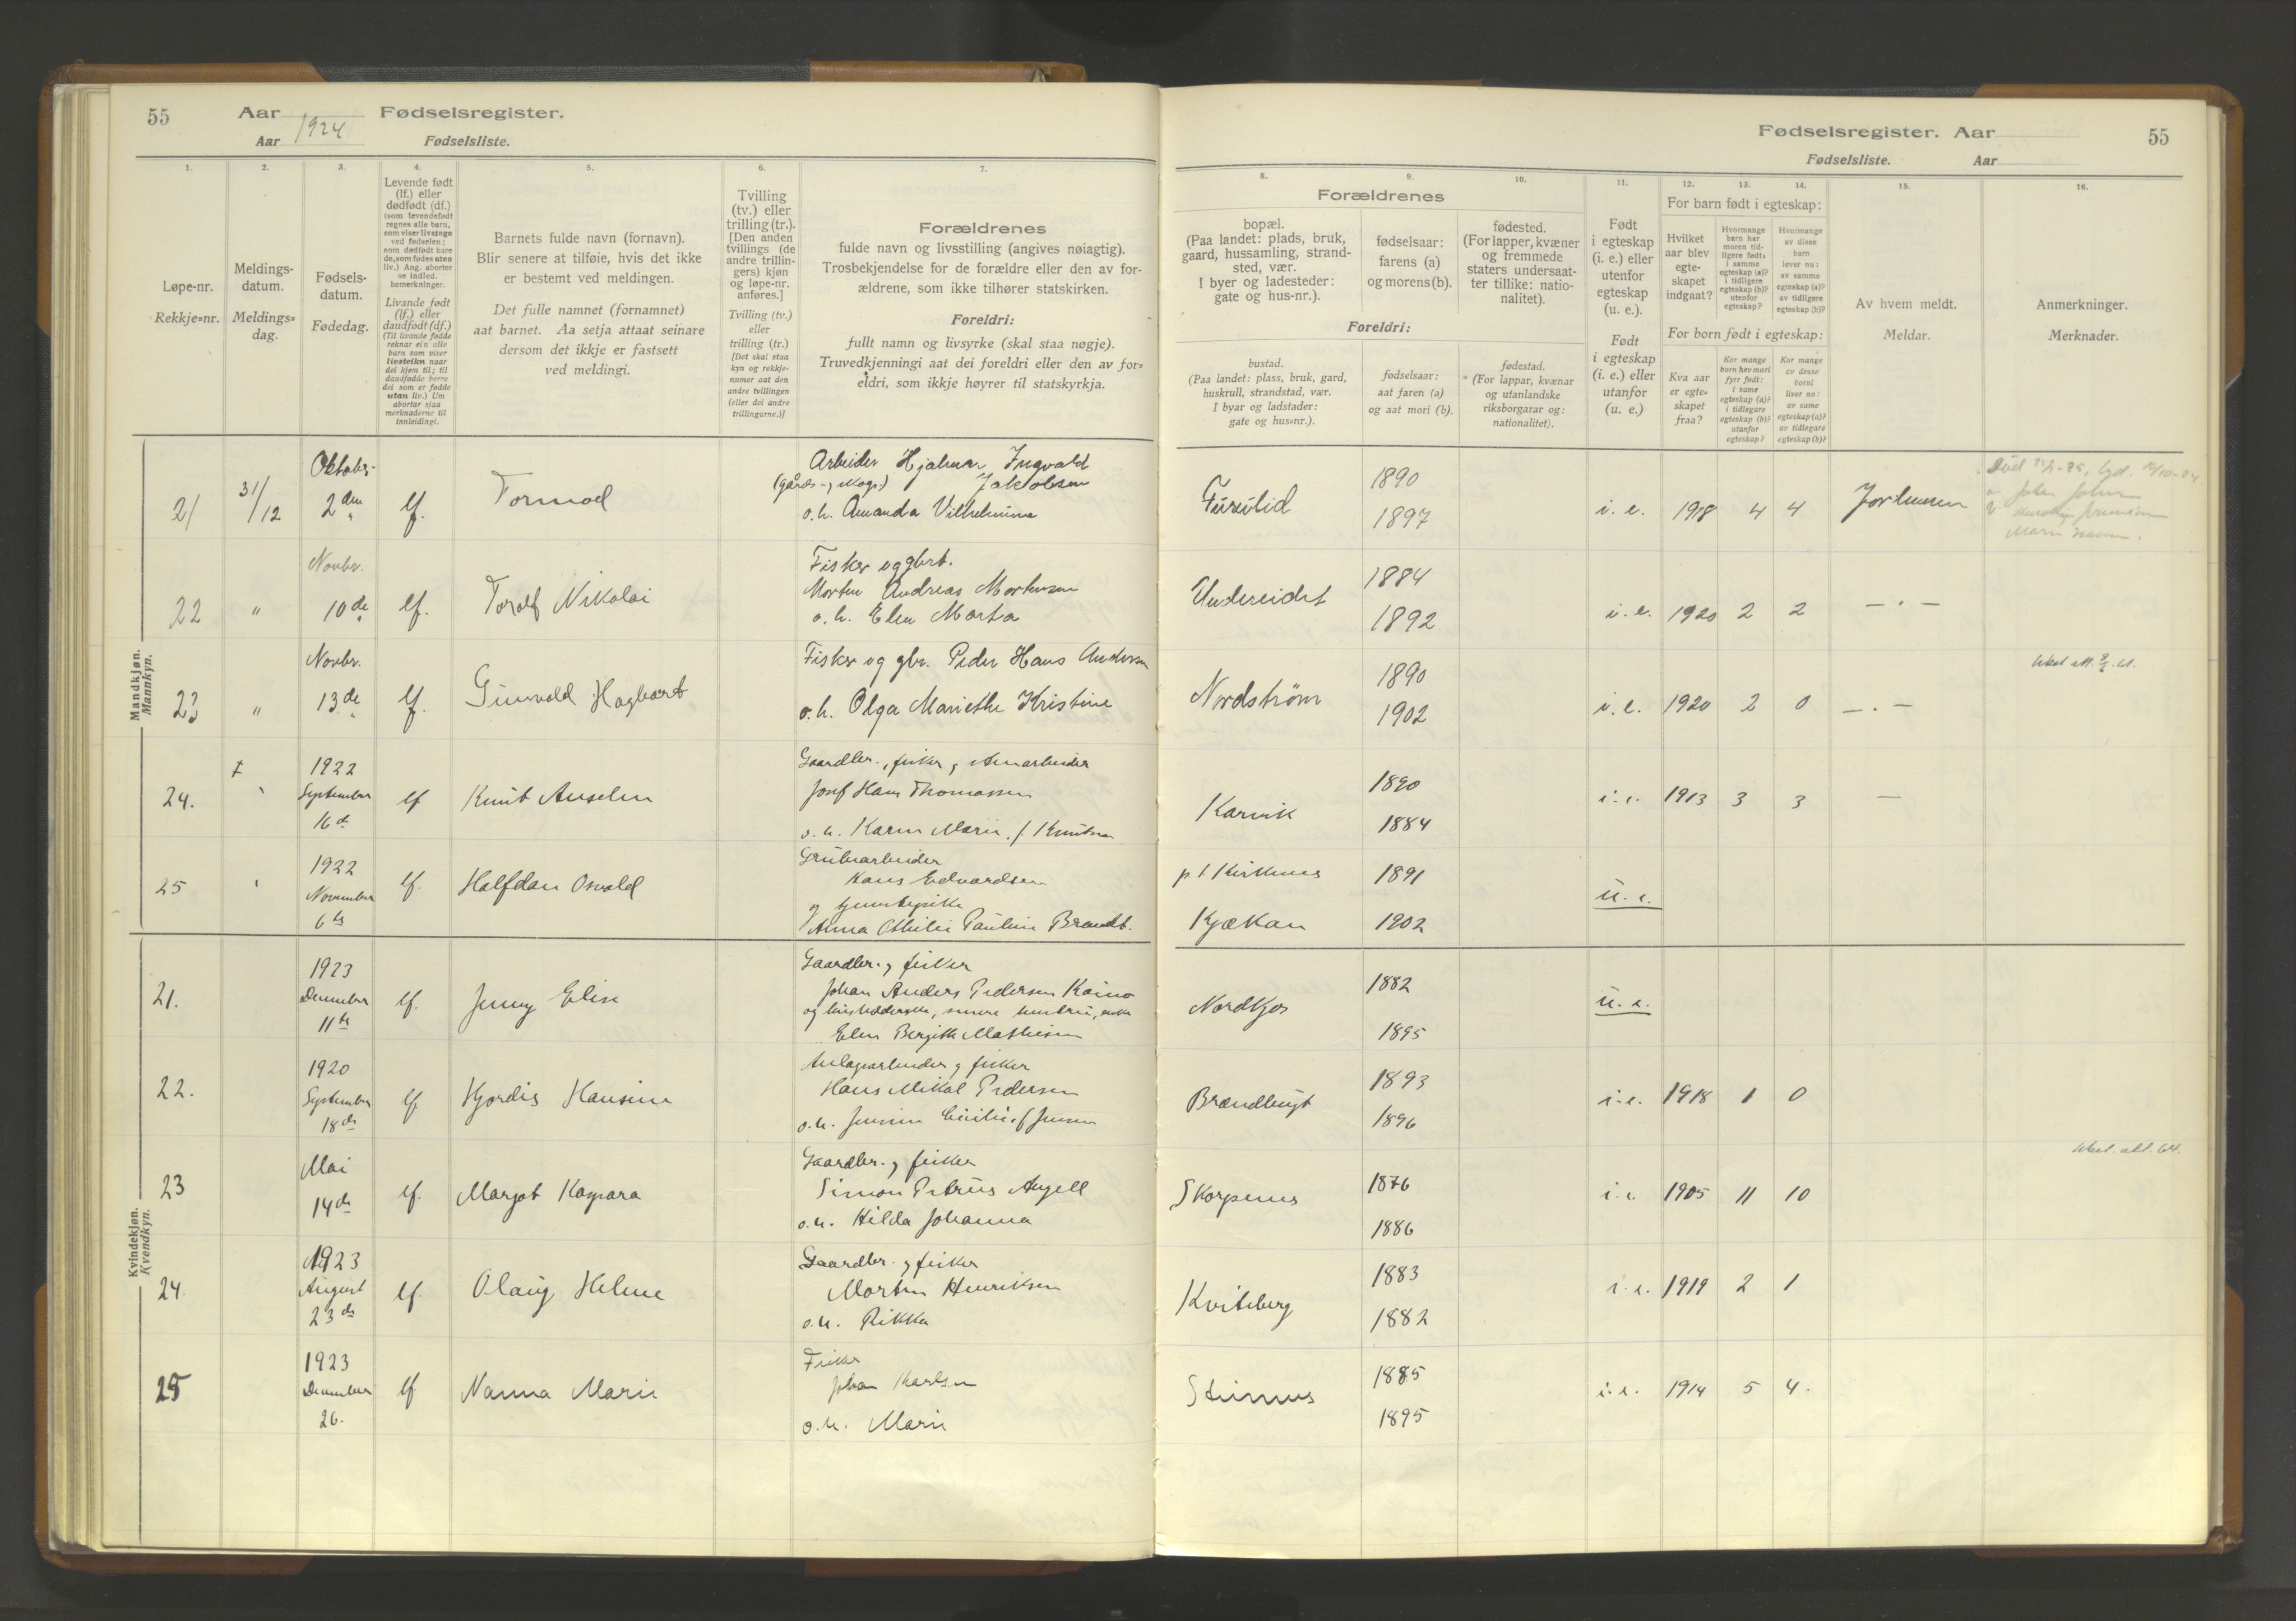 55
Aar
Fødselsregister.
Aar
1924
Fødselsliste.
1.
2.
3.
4.
5.
6.
7.
Løpe-nr.
Rekkje=nr.
Meldings-
datum.
Meldings=
dag.
Fødsels-
datum.
Fødedag.
Levende født
(lf.) eller
dødfødt (df.)
(som levendefødt
regnes alle barn,
som viser livstegn
ved fødselen;
som dødfødt bare
de, som fødes uten
liv.) Ang. aborter
se indled.
bemerkninger.
Livande født
(lf.) eller
daudfødt (df.)
(Til livande fødde
reknar ein alle
barn som viser
livsteikn naar
dei kjem til; til
daudfødde berre
dei som er fødde
utan liv.) Um
abortar sjaa
merknaderne til
innleidingi.
Barnets fulde navn (fornavn).
Blir senere at tilføie, hvis det ikke
er bestemt ved meldingen.
Det fulle namnet (fornamnet)
aat barnet. Aa setja attaat seinare
dersom det ikkje er fastsett
ved meldingi.
Tvilling
(tv.) eller
trilling (tr.).
[Den anden
tvillings (de
andre trillin-
gers) kjøn
og løpe-nr.
anføres.]
Tvilling (tv.)
eller
trilling (tr.)
[Det skal staa
kyn og rekkje-
numer aat den
andre tvillingen
(eller dei andre
trillingarne.)]
Forældrenes
fulde navn og livsstilling (angives nøiagtig).
Trosbekjendelse for de forældre eller den av for-
ældrene, som ikke tilhører statskirken.
Foreldri:
fullt namn og livsyrke (skal staa nøgje).
Truvedkjenningi aat dei foreldri eller den av for=
eldri, som ikkje høyrer til statskyrkja.
Fødselsregister. Aar
55
Fødselsliste.
Aar
8.
9.
10.
11.
12.
13.
14.
15.
16.
Forældrenes
bopæl.
(Paa landet: plads, bruk,
gaard, hussamling, strand-
sted, vær.
I byer og ladesteder:
gate og hus-nr.).
fødselsaar:
farens (a)
og morens (b).
fødested.
(For lapper, kvæner
og fremmede
staters undersaat-
ter tillike: natio-
nalitet).
Foreldri:
bustad.
(Paa landet: plass, bruk, gard,
huskrull, strandstad, vær.
I byar og ladstader:
gate og hus=nr.).
fødselsaar:
aat faren (a)
og aat mori (b).
fødestad.
(For lappar, kvænar
og utanlandske
riksborgarar og:
nationalitet).
Født
i egteskap
(i. e.) eller
utenfor
egteskap
(u. e.).
Født
i egteskap
(i. e.) eller
utanfor
(u. e.)
For barn født i egteskap:
Hvilket
aar blev
egte-
skapet
indgaat?
Hvormange
barn har
moren tid-
ligere født:
i samme
egteskap (a)?
i tidligere
egteskap (b)?
utenfor
egteskap?
Hvormange
av disse
barn
lever nu:
av samme
egteskap (a)?
av tidligere
egteskap (b)?
For born født i egteskap:
Kva aar
er egte-
skapet
fraa?
Kor mange
born hev mori
fyrr født:
i same
egteskap (a)?
i tidlegare
egteskap (b)?
utanfor
egteskap?
Kor mange
av desse
borni
liver no:
av same
egteskap (a)?
av tidlegare
egteskap (b)?
Av hvem meldt.
Meldar.
Anmerkninger.
Merknader.
Mandkjøn.
Mannkyn.
21
31/12
Oktober
2den
lf.
Tormod
Arbeider Hjalmar Ingvald
(gårds- og skogs)
Jakobsen
o. h. Amanda Vilhelmine
1890
1897
i. e.
1918
4
4
22
"
Novbr.
10de
lf.
Toralf Nikolai
Fisker og gbrt.
Morten Andreas Mortensen
o. h. Elen Marta
Undereidet
1884
1892
i. e.
1920
2
2
— " —
23
"
Novbr.
13de
lf.
Gunvald Hagbart
Fisker og gbr. Peder Hans Andersen
o. h. Olga Mariethe Kristine
Nordstrøm
1890
1902
i. e.
1920
2
0
— . —
24.
1922
September
16de
lf
Knut Anselm
Gaardbr., fisker og
Josef Hans Thomassen
o. h. Karen Marie f. Knutsen
Karvik
1890
1884
i. e.
1913
3
3
—
25
1922
November
6te
lf.
Halfdan Osvald
Grubearbeider
Hans Edvardsen
og tjenestepike
Anna Othilie Pauline Brandt.
p. t. Kirkenes
Kjækan
1891
1902
u. e.
Kvindekjøn.
Kvendkyn.
21.
1923
December
11te
lf.
Jenny Elise
Gaardbr. og fisker
Johan Anders Pedersen Kaino
Elen Bergitte Mathisen
Nordkjos
1882
1895
u. e.
22.
1920
September
18de
lf
Hjordis Hansine
Anlægsarbeider og fisker
Hans Mikal Pedersen
Brændbugt
1893
1896
i. e.
1918
1
0
23
Mai
14de
lf.
Margot Kaspara
Gaardbr. og fisker
Simon Petrus Angell
o. h. Hilda Johanna
Skorpenes
1876
1886
i. e.
1905
11
10
24.
1923
August
23de
lf.
Olaug Helene
Gaardbr. og fisker
Morten Henriksen
o. h. Rikka
Kviteberg
1883
1882
i. e.
1919
2
1
25
1923
December
26.
lf
Nanna Marie
Fisker
Johan Karlsen
o. h. Marie
1885
1895
i. e.
1914
5
4.